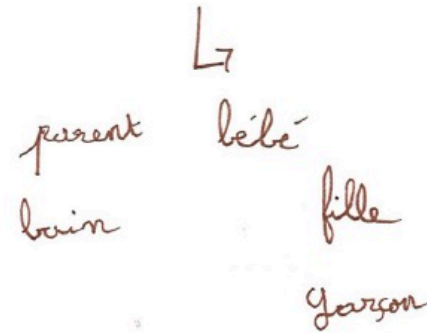 parent bébé
bain fille
garçon